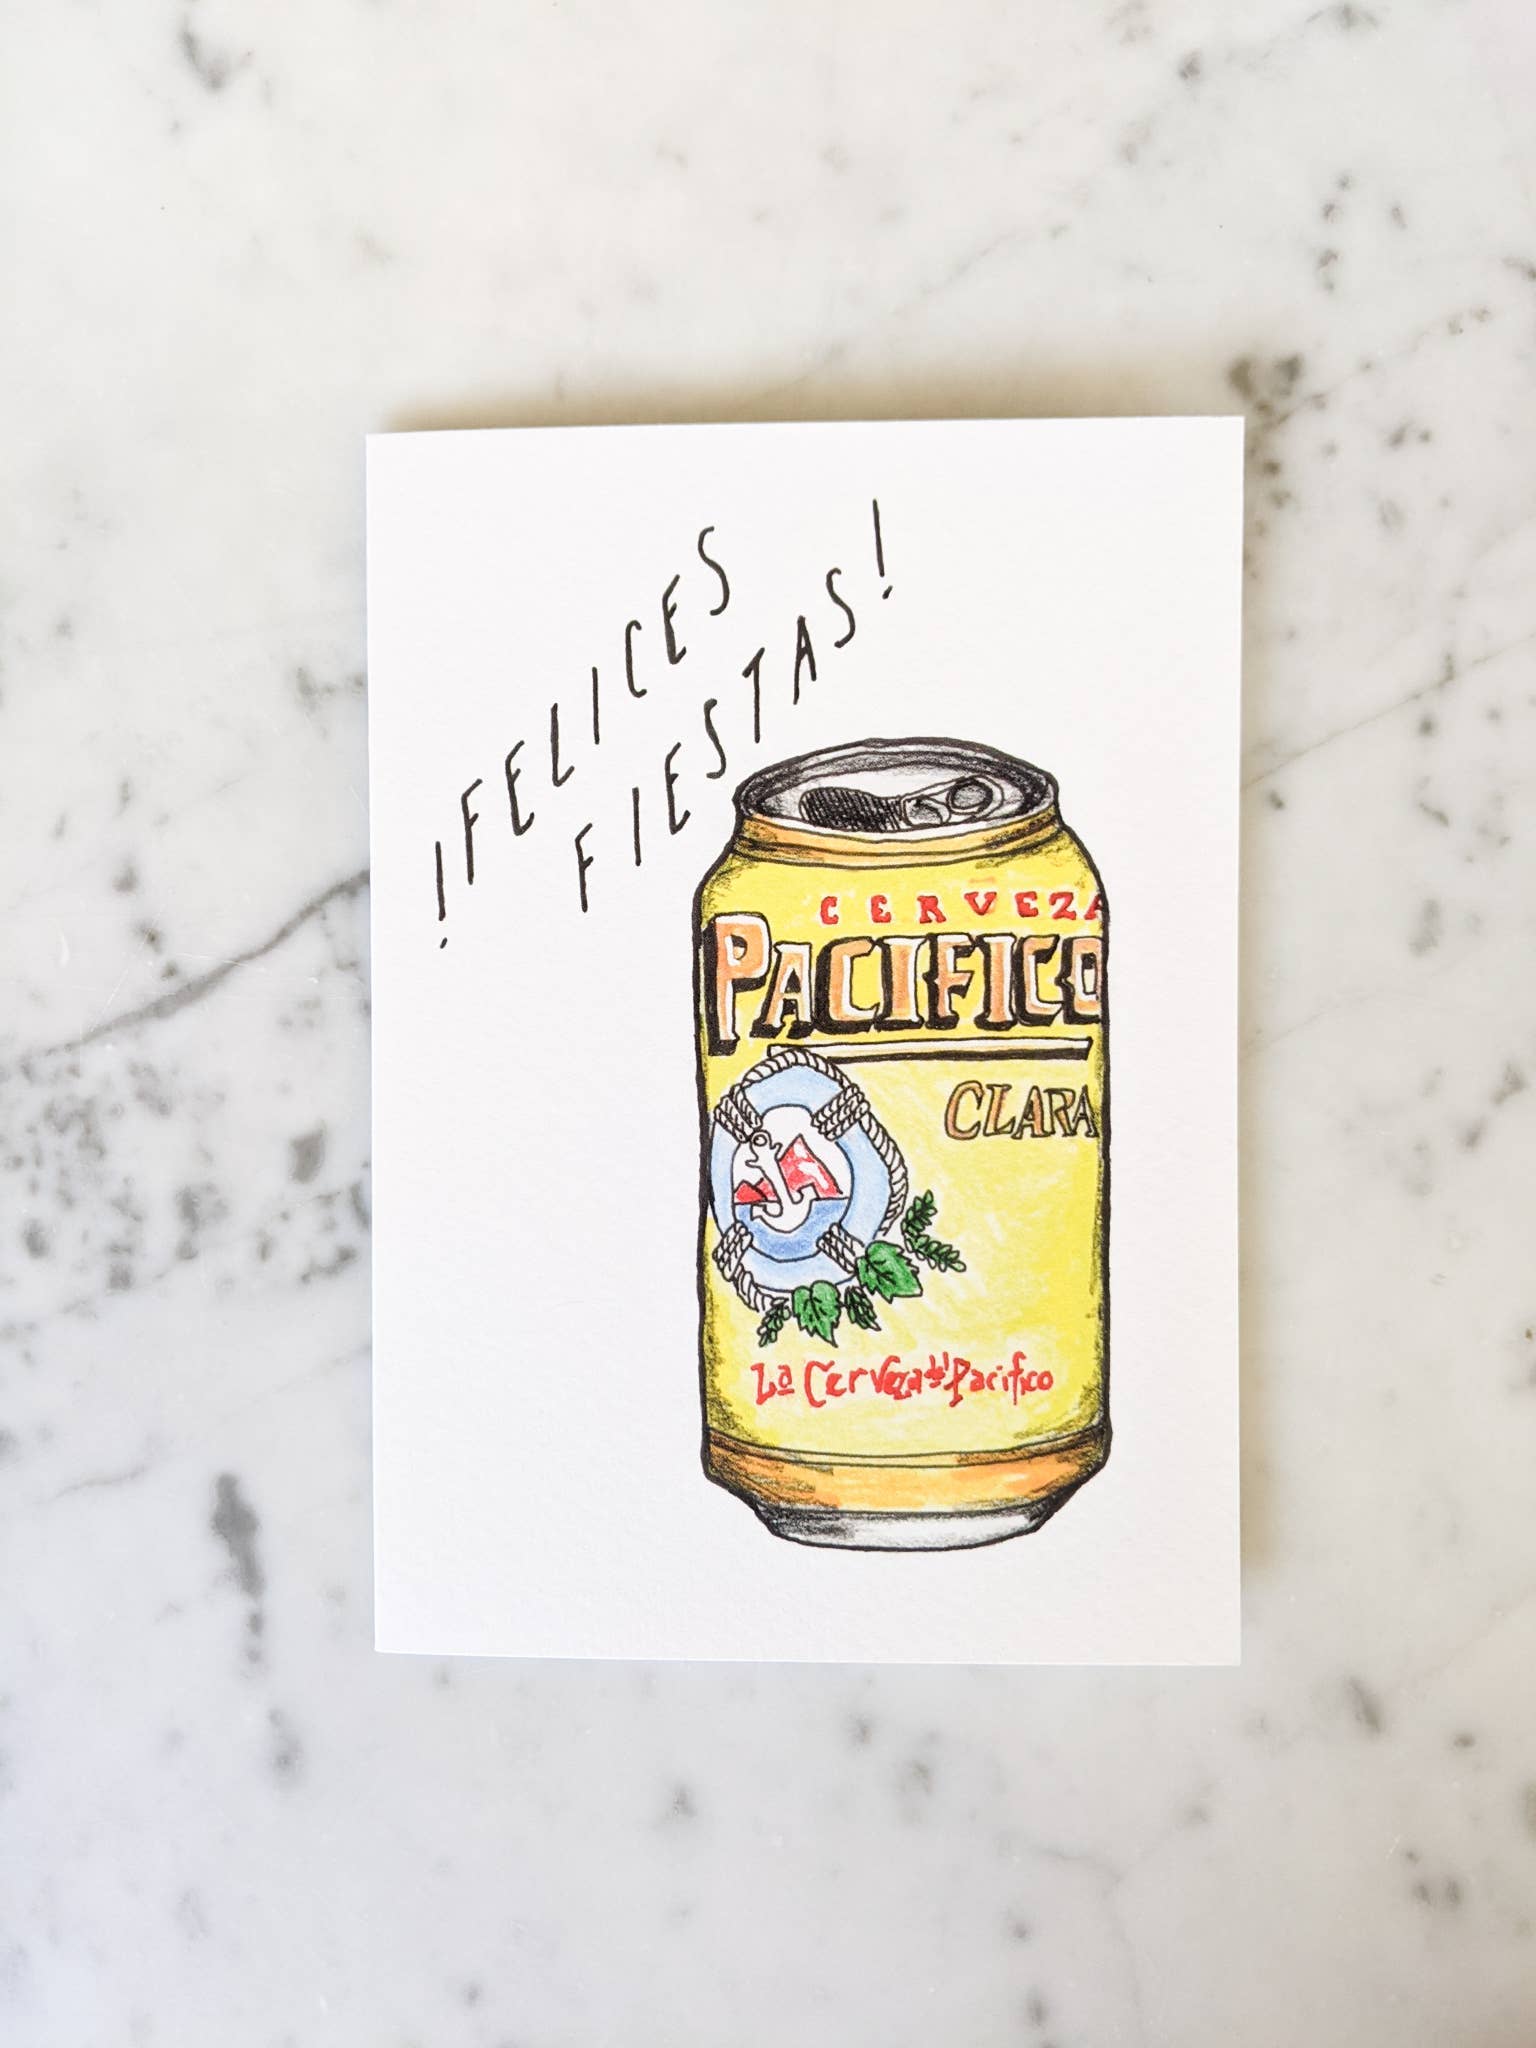 !FELICES
FIESTAS!
CERVEZA
PACIFICO
CLARA
La Cerveza del Pacifico